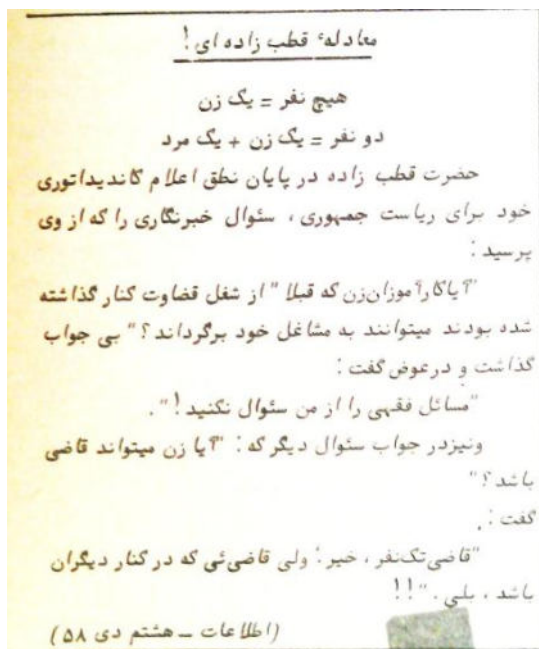 معادلهٔ قطب زاده ای!
هیچ نفر = یک زن
دو نفر = یک زن + یک مرد
حضرت قطب زاده در پایان نطق اعلام کاندیداتوری
خود برای ریاست جمهوری ، سئوال خبرنگاری را که از وی
پرسید :
"آیا کارآموزان زن که قبلا" از شغل قضاوت کنار گذاشته
شده بودند میتوانند به مشاغل خود برگرداند ؟" بی جواب
گذاشت و در عوض گفت :
"مسائل فقهی را از من سئوال نکنید !" .
ونیز در جواب سئوال دیگر که : "آیا زن میتواند قاضی
باشد ؟"
گفت :
"قاضی تک‌نفر ، خیر ! ولی قاضی‌ئی که در کنار دیگران
باشد ، بلی . "!!
(اطلاعات ــ هشتم دی ۵۸)